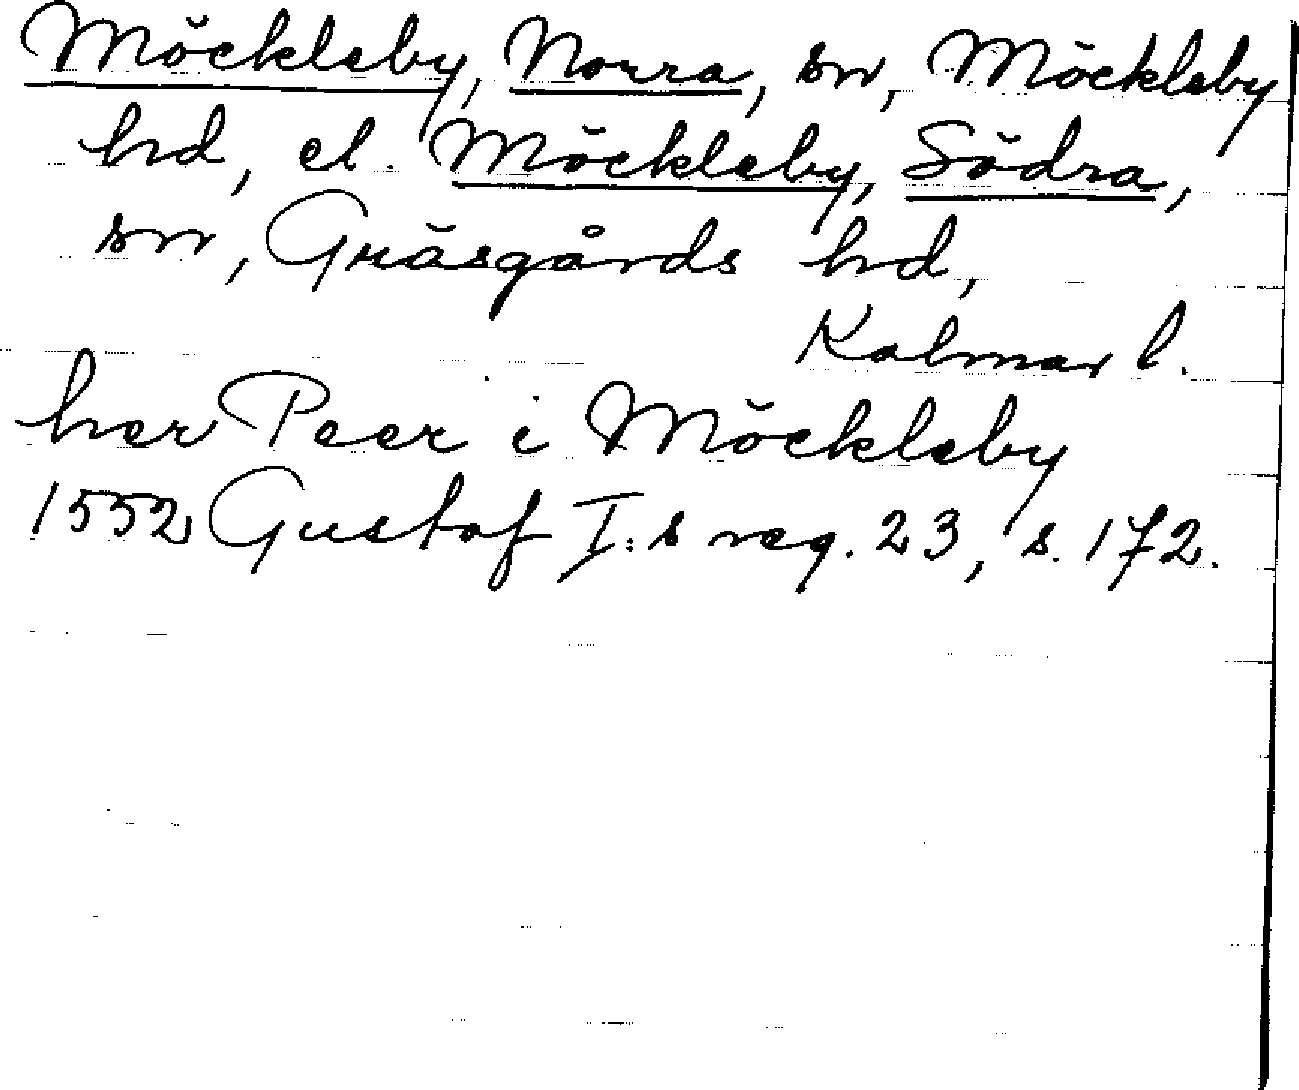 Möckleby, Norra, sn, Möckleby
hd, el. Möckleby, Södra,
sn, Gräsgårds hd,
Kalmar l.
her Peer i Möckleby
1552 Gustaf I:s reg. 23, s. 172.